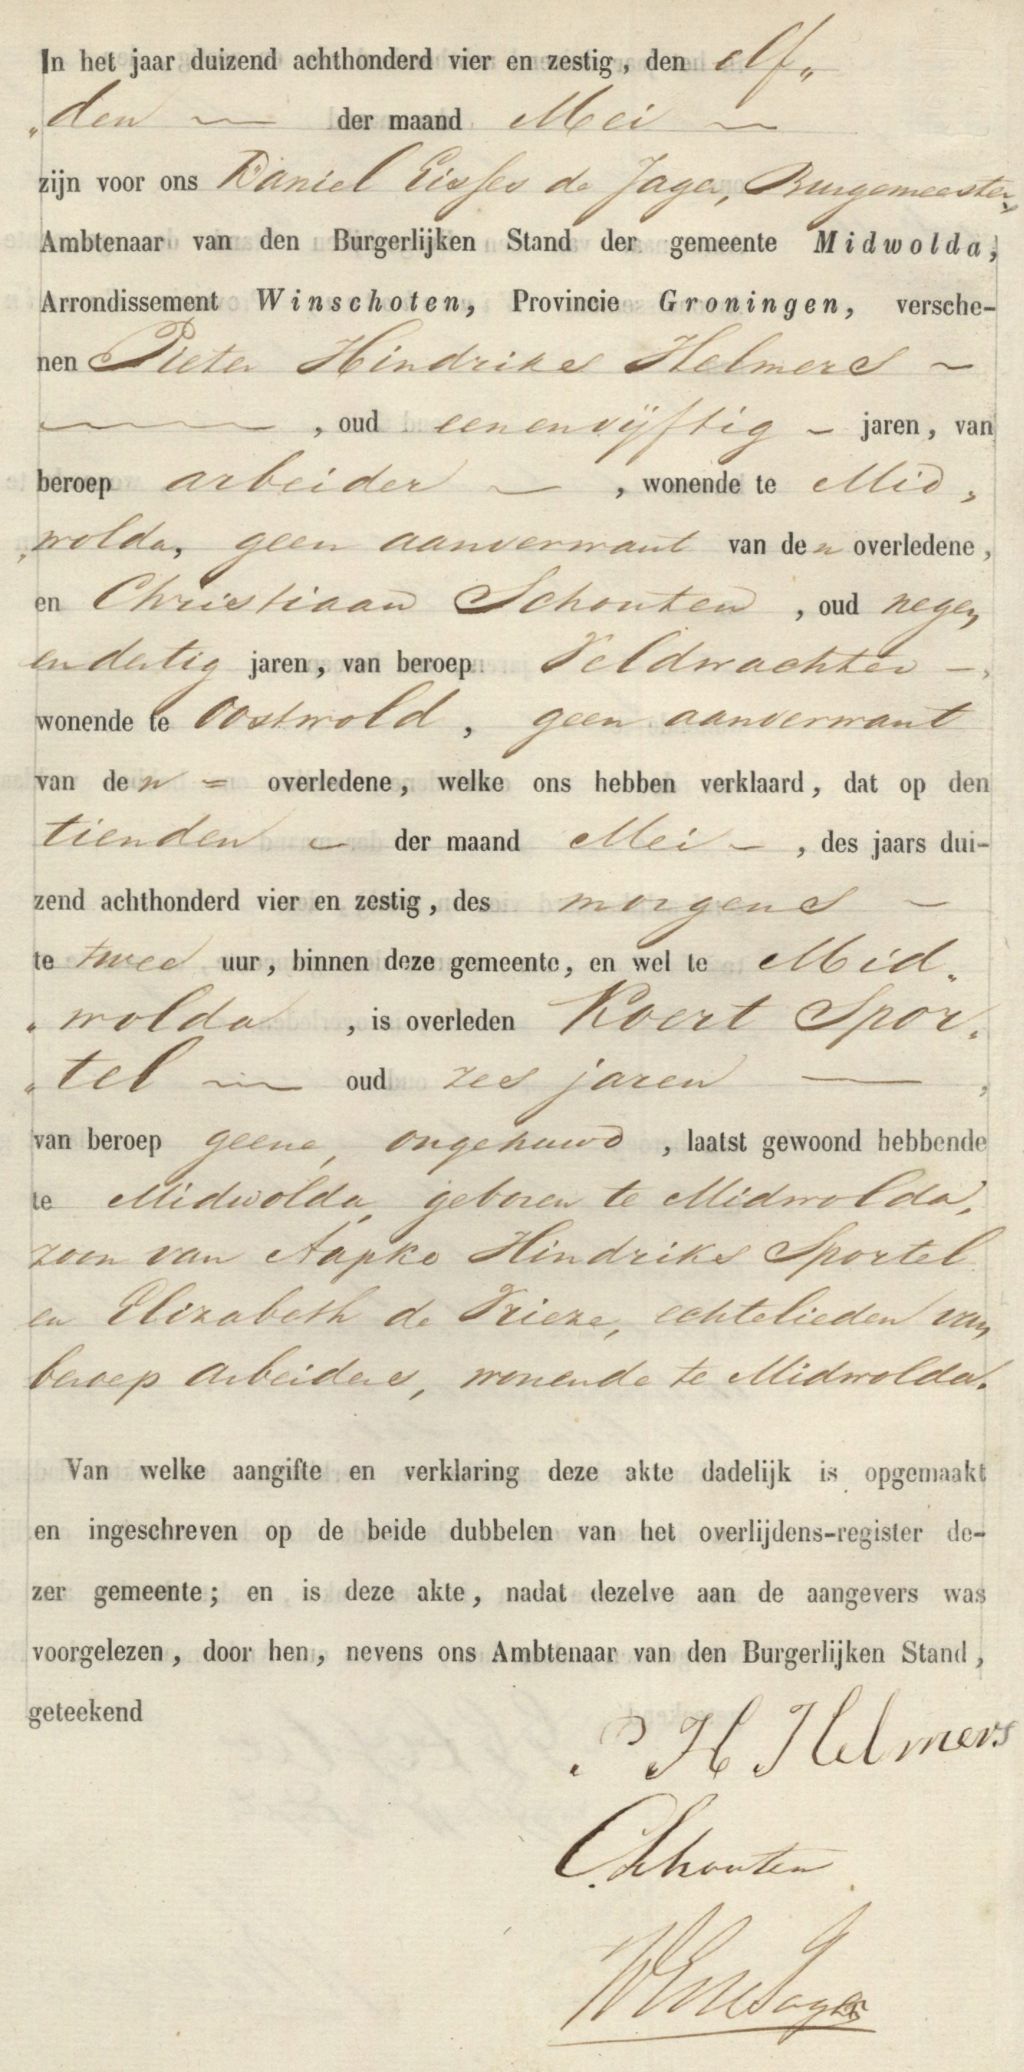 In het jaar duizend achthonderd vier en zestig, den elf„
„den — der maand Mei —
zijn voor ons Daniel Eisses de Jager, Burgemeester,
Ambtenaar van den Burgerlijken Stand der gemeente Midwolda,
Arrondissement Winschoten, Provincie Groningen, versche-
nen Pieter Hindriks Helmers —
—, oud eenenvijftig — jaren, van
beroep arbeider —, wonende te Mid„
„wolda, geen aanverwant van den overledene,
en Christiaan Schouten, oud negen
endertig jaren, van beroep Veldwachter —,
wonende te Oostwold, geen aanverwant
van den = overledene, welke ons hebben verklaard, dat op den
tienden — der maand Mei —, des jaars dui-
zend achthonderd vier en zestig, des morgens —
te twee uur, binnen deze gemeente, en wel te Mid„
„wolda, is overleden Koert Spor„
„tel — oud zes jaren —,
van beroep geene, ongehuwd, laatst gewoond hebbende
te Midwolda, geboren te Midwolda,
zoon van Aapko Hindriks Sportel
en Elizabeth de Vrieze, echtelieden van
beroep arbeiders, wonende te Midwolda.
Van welke aangifte en verklaring deze akte dadelijk is opgemaakt
en ingeschreven op de beide dubbelen van het overlijdens-register de-
zer gemeente; en is deze akte, nadat dezelve aan de aangevers was
voorgelezen, door hen, nevens ons Ambtenaar van den Burgerlijken Stand,
geteekend
P H Helmers
C. Schouten
DE de Jager